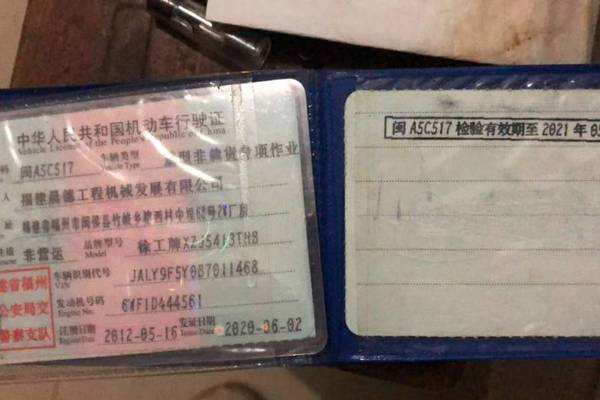 中华人民共和国机动车行驶证
Vehicle License of the People's Republic of China
码 闽A5C517 车辆类型 Vehicle Type 型非载货专项作业
人 福建晶德工程机械发展有限公司
址 福建省福州市闽侯县竹岐乡
非营运 品牌型号 Model 徐工牌XZJ5413THB
车辆识别代号 VIN JALY9F5Y087011468
发动机号码 Engine No. 6WFID444561
注册日期 Register Date 2012-05-16 发证日期 Issue Date 2020-06-02
省福州
公安局交
警察支队
闽A5C517 检验有效期至 2021 年